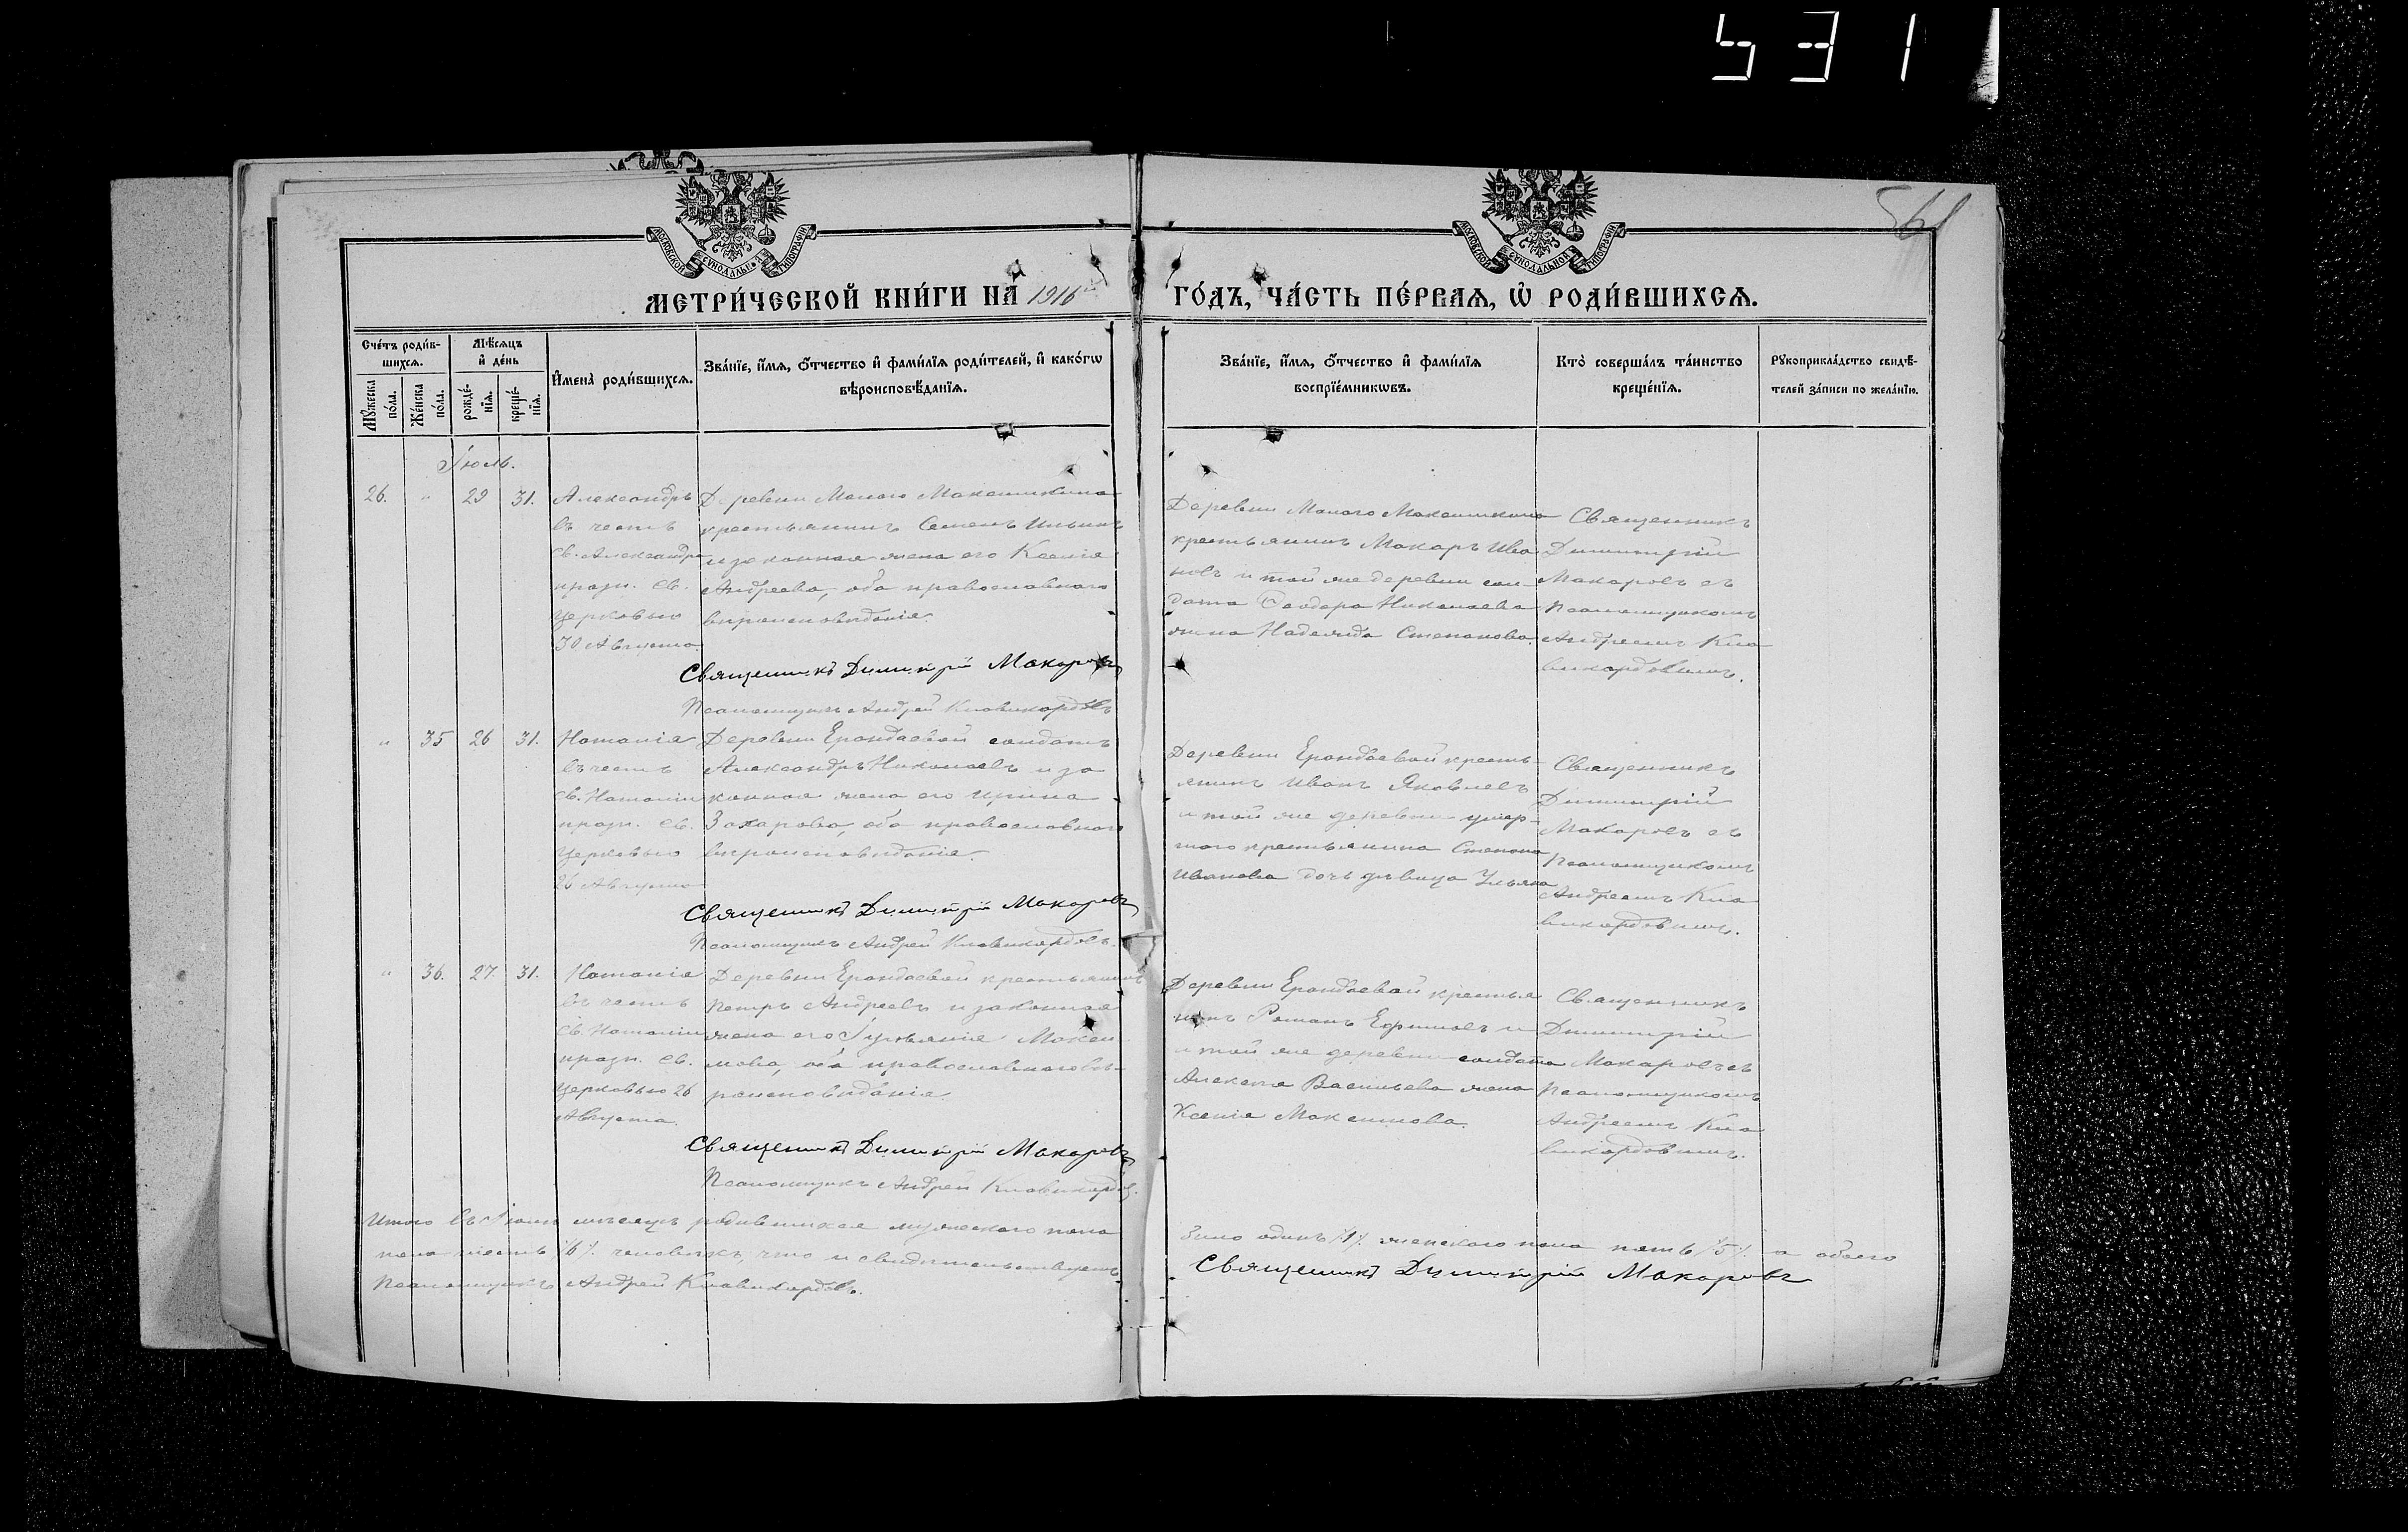 531
561
МОСКОВСКОЙ СѴНОДАЛЬНОЙ ТИПОГРАФІИ
МОСКОВСКОЙ СѴНОДАЛЬНОЙ ТИПОГРАФІИ
МЕТРИ́ЧЕСКОЙ КНИ́ГИ НА 1916 й
ГО́ДЪ, ЧА́СТЬ ПЕ́РВАѦ, Ѡ҆ РОДИ́ВШИХСѦ.
Сче́тъ роди́в-
шихсѧ.
Мꙋ́жеска по́ла.
Же́нска по́ла.
Мѣ́сѧцъ
и҆ де́нь
рожде́-
нїѧ.
креще́-
нїѧ.
И҆мена̀ роди́вшихсѧ.
Зва́нїе, и҆́мѧ, ѻ҆́тчество и҆ фами́лїѧ роди́телей, и҆ како́гѡ
вѣроисповѣ́данїѧ.
Зва́нїе, и҆́мѧ, ѻ҆́тчество и҆ фами́лїѧ
воспрїе́мникѡвъ.
Кто̀ соверша́лъ та́инство
креще́нїѧ.
Рꙋкоприкла́дство свидѣ́-
телей за́писи по жела́нїю.
Іюль.
26. " 29 31.
Александръ
въ честь
св. Александра
празн. св.
церковью
30 Августа.
Деревни Малаго Максимкина
крестьянинъ Семенъ Ильинъ
и законная жена его Ксенія
Андреева, оба православнаго
вѣроисповѣданія.
Священникъ Димитрій Макаровъ
Псаломщикъ Андрей Клавикордовъ
Деревни Малаго Максимкина
крестьянинъ Макаръ Ива
новъ и той же деревни сол-
дата Ѳеодора Николаева
жена Надежда Степанова.
Священникъ
Димитрій
Макаровъ съ
Псаломщикомъ
Андреемъ Кла
викордовымъ.
" 35 26 31.
Наталія
въ честь
св. Наталіи
празн. св.
церковью
26 Августа
Деревни Ерандаевой солдатъ
Александръ Николаевъ и за
конная жена его Ирина
Захарова, оба православнаго
вѣроисповѣданія.
Священникъ Димитрій Макаровъ
Псаломщикъ Андрей Клавикордовъ.
Деревни Ерандаевой кресть-
янинъ Иванъ Яковлевъ
и той же деревни умер-
шаго крестьянина Степана
Иванова дочь дѣвица Ульяна
Священникъ
Димитрій
Макаровъ съ
Псаломщикомъ
Андреемъ Кла
викордовымъ.
" 36. 27. 31.
Наталія
въ честь
св. Наталіи
празн. св.
церковью 26
Августа.
Деревни Ерандаевой крестьянинъ
Петръ Андреевъ и законная
жена его Іуліанія Макси
мова, оба православнаго вѣ-
роисповѣданія.
Священникъ Димитрій Макаровъ
Псаломщикъ Андрей Клавикордовъ.
Деревни Ерандаевой крестья
нинъ Романъ Ефимовъ и
и той же деревни солдата
Алексѣя Васильева жена
Ксенія Максимова.
Священникъ
Димитрій
Макаровъ съ
Псаломщикомъ
Андреемъ Кла
викордовымъ.
Итого въ Іюлѣ мѣсяцѣ родившихся мужескаго пола
было одинъ /1/. женскаго пола пять /5/. а обоего
пола шесть /6/. человѣкъ, что и свидѣтельствуемъ
Священникъ Димитрій Макаровъ
Псаломщикъ Андрей Клавикордовъ.